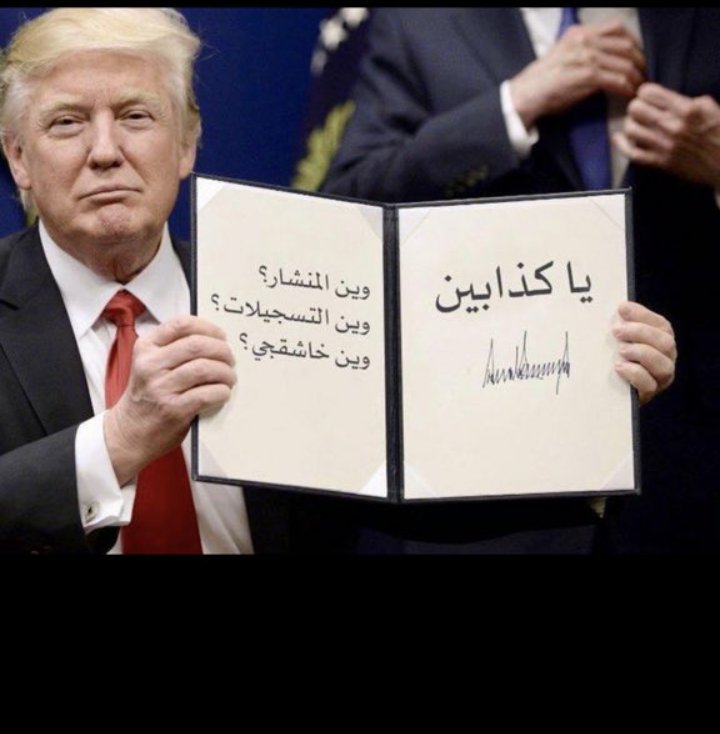 يا كذابين
وين المنشار؟
وين التسجيلات؟
وين خاشقجي؟